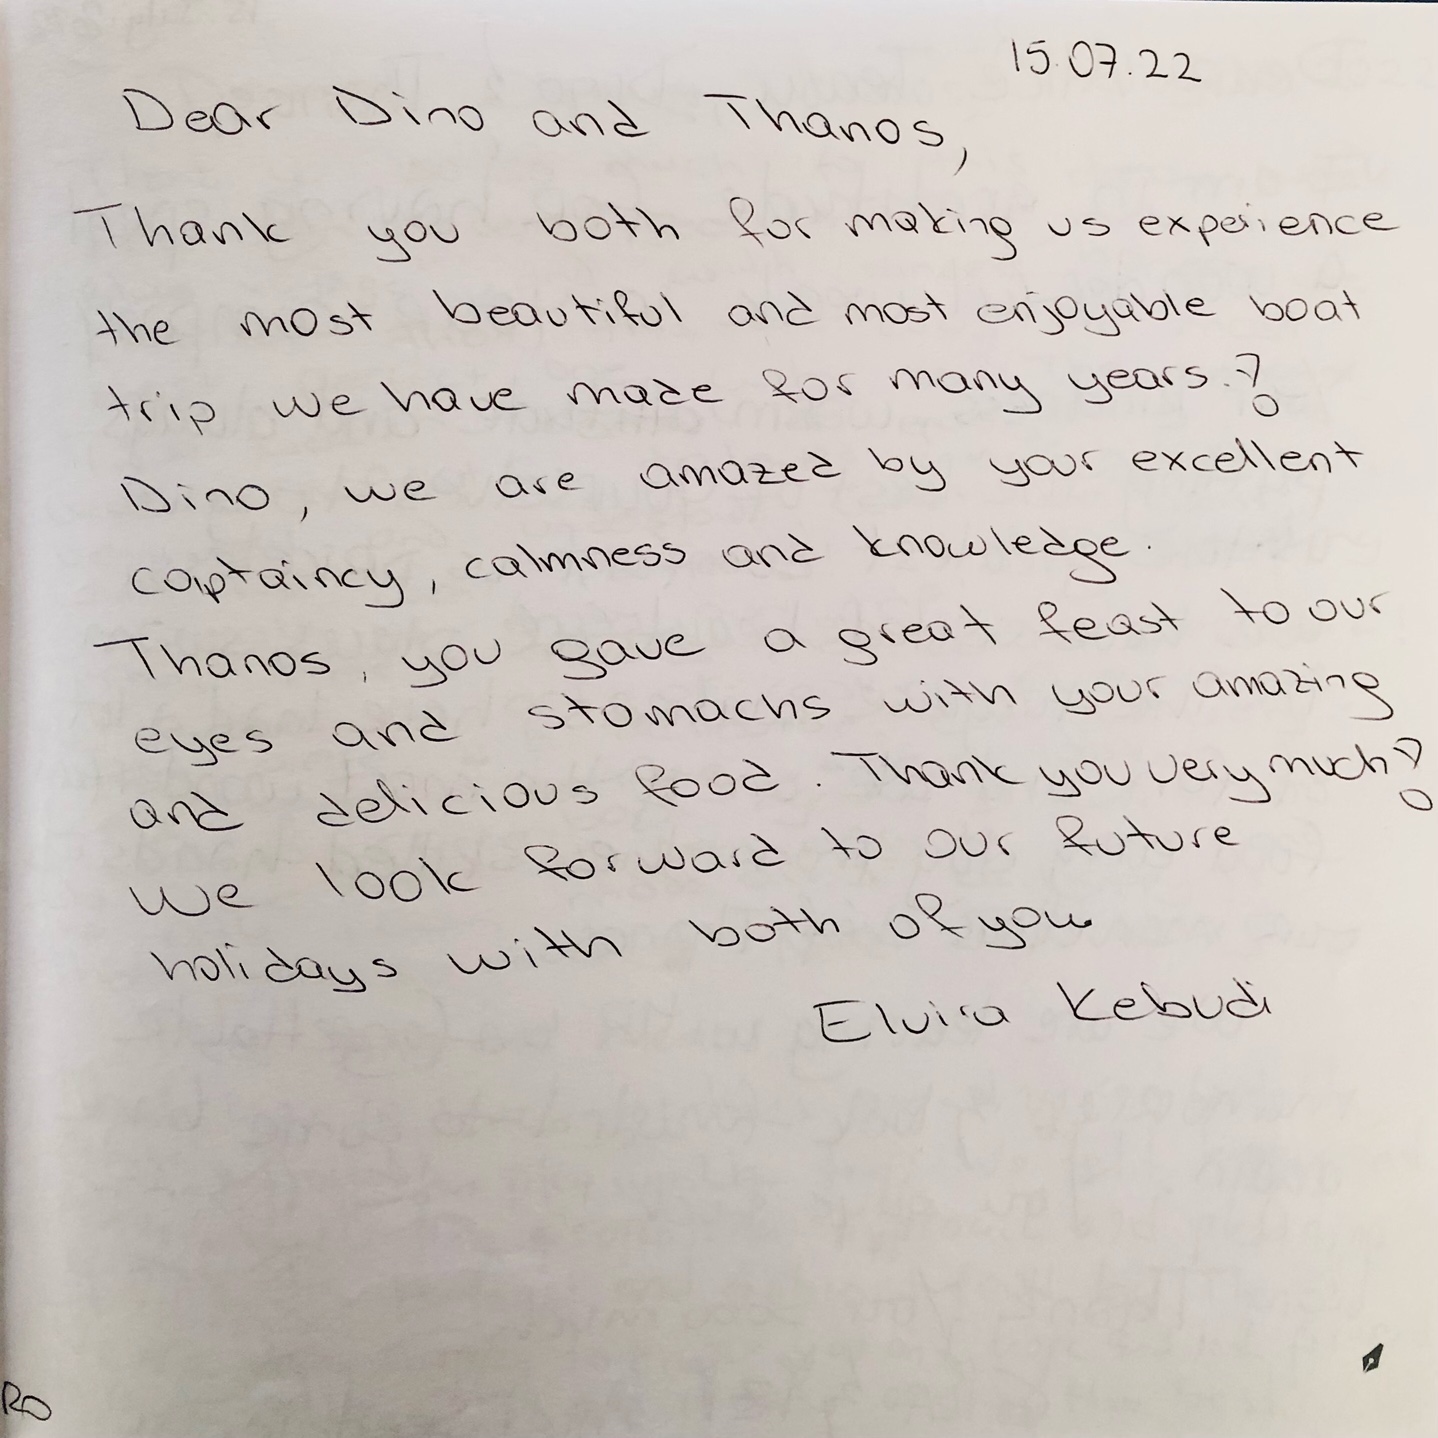 15.07.22
Dear Dino and Thanos,
Thank you both for making us experience
the most beautiful and most enjoyable boat
trip we have made for many years.!
Dino, we are amazed by your excellent
captaincy, calmness and knowledge.
Thanos, you gave a great feast to our
eyes and stomachs with your amazing
and delicious food. Thank you very much!
We look forward to our future
holidays with both of you
Elvira Kebudi
RO